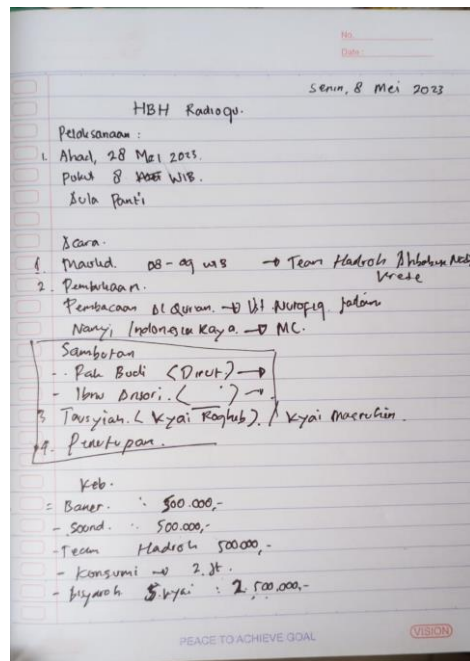 No.
Date:
Senin, 8 Mei 2023
HBH Radioqu.
Pelaksanaan :
1. Ahad, 28 Mei 2023.
Pukul 8 WIB.
Aula Panti
Acara.
1. Maulid. 08-09 WIB → Team Hadroh
2. Pembukaan.
Pembacaan Al Quran. → Ust Nurofiq
Nanyi Indonesia Raya. → MC.
Sambutan
- Pak Budi (Dirut) →
- Ibnu Ansori. ( " ) →
3 Tausyiah. (Kyai Roghib) / Kyai Masruhin.
4. Penutupan.
Keb.
= Baner. : 500.000,-
- Sound. : 500.000,-
- Team Hadroh 500000,-
- Konsumi → 2.Jt.
- Bisyaroh 5 kyai : 2.500.000,-
PEACE TO ACHIEVE GOAL
VISION